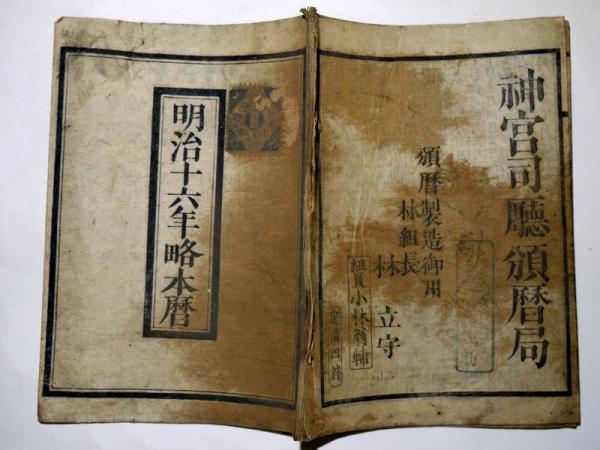 神宮司廳頒暦局
頒暦製造御用
林組長
林 立守
組員 小林
定價四錢
明治十六年略本暦